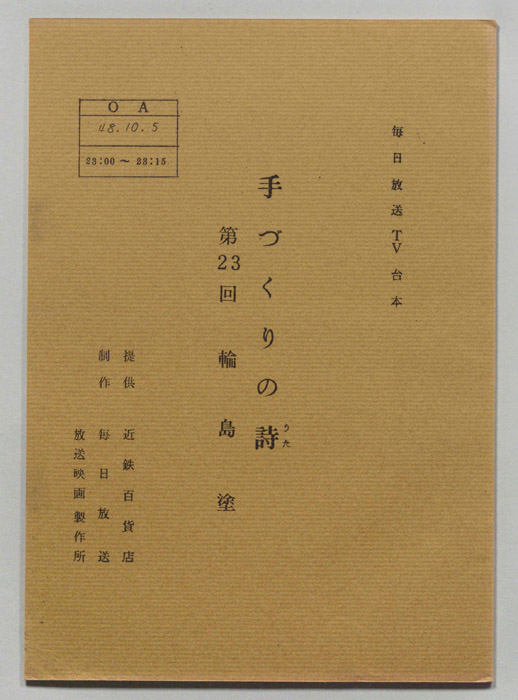 毎日放送TV台本
手づくりの詩
うた
第23回 輪島塗
OA
48.10.5
23:00～23:15
提供 近鉄百貨店
制作 毎日放送
放送映画製作所